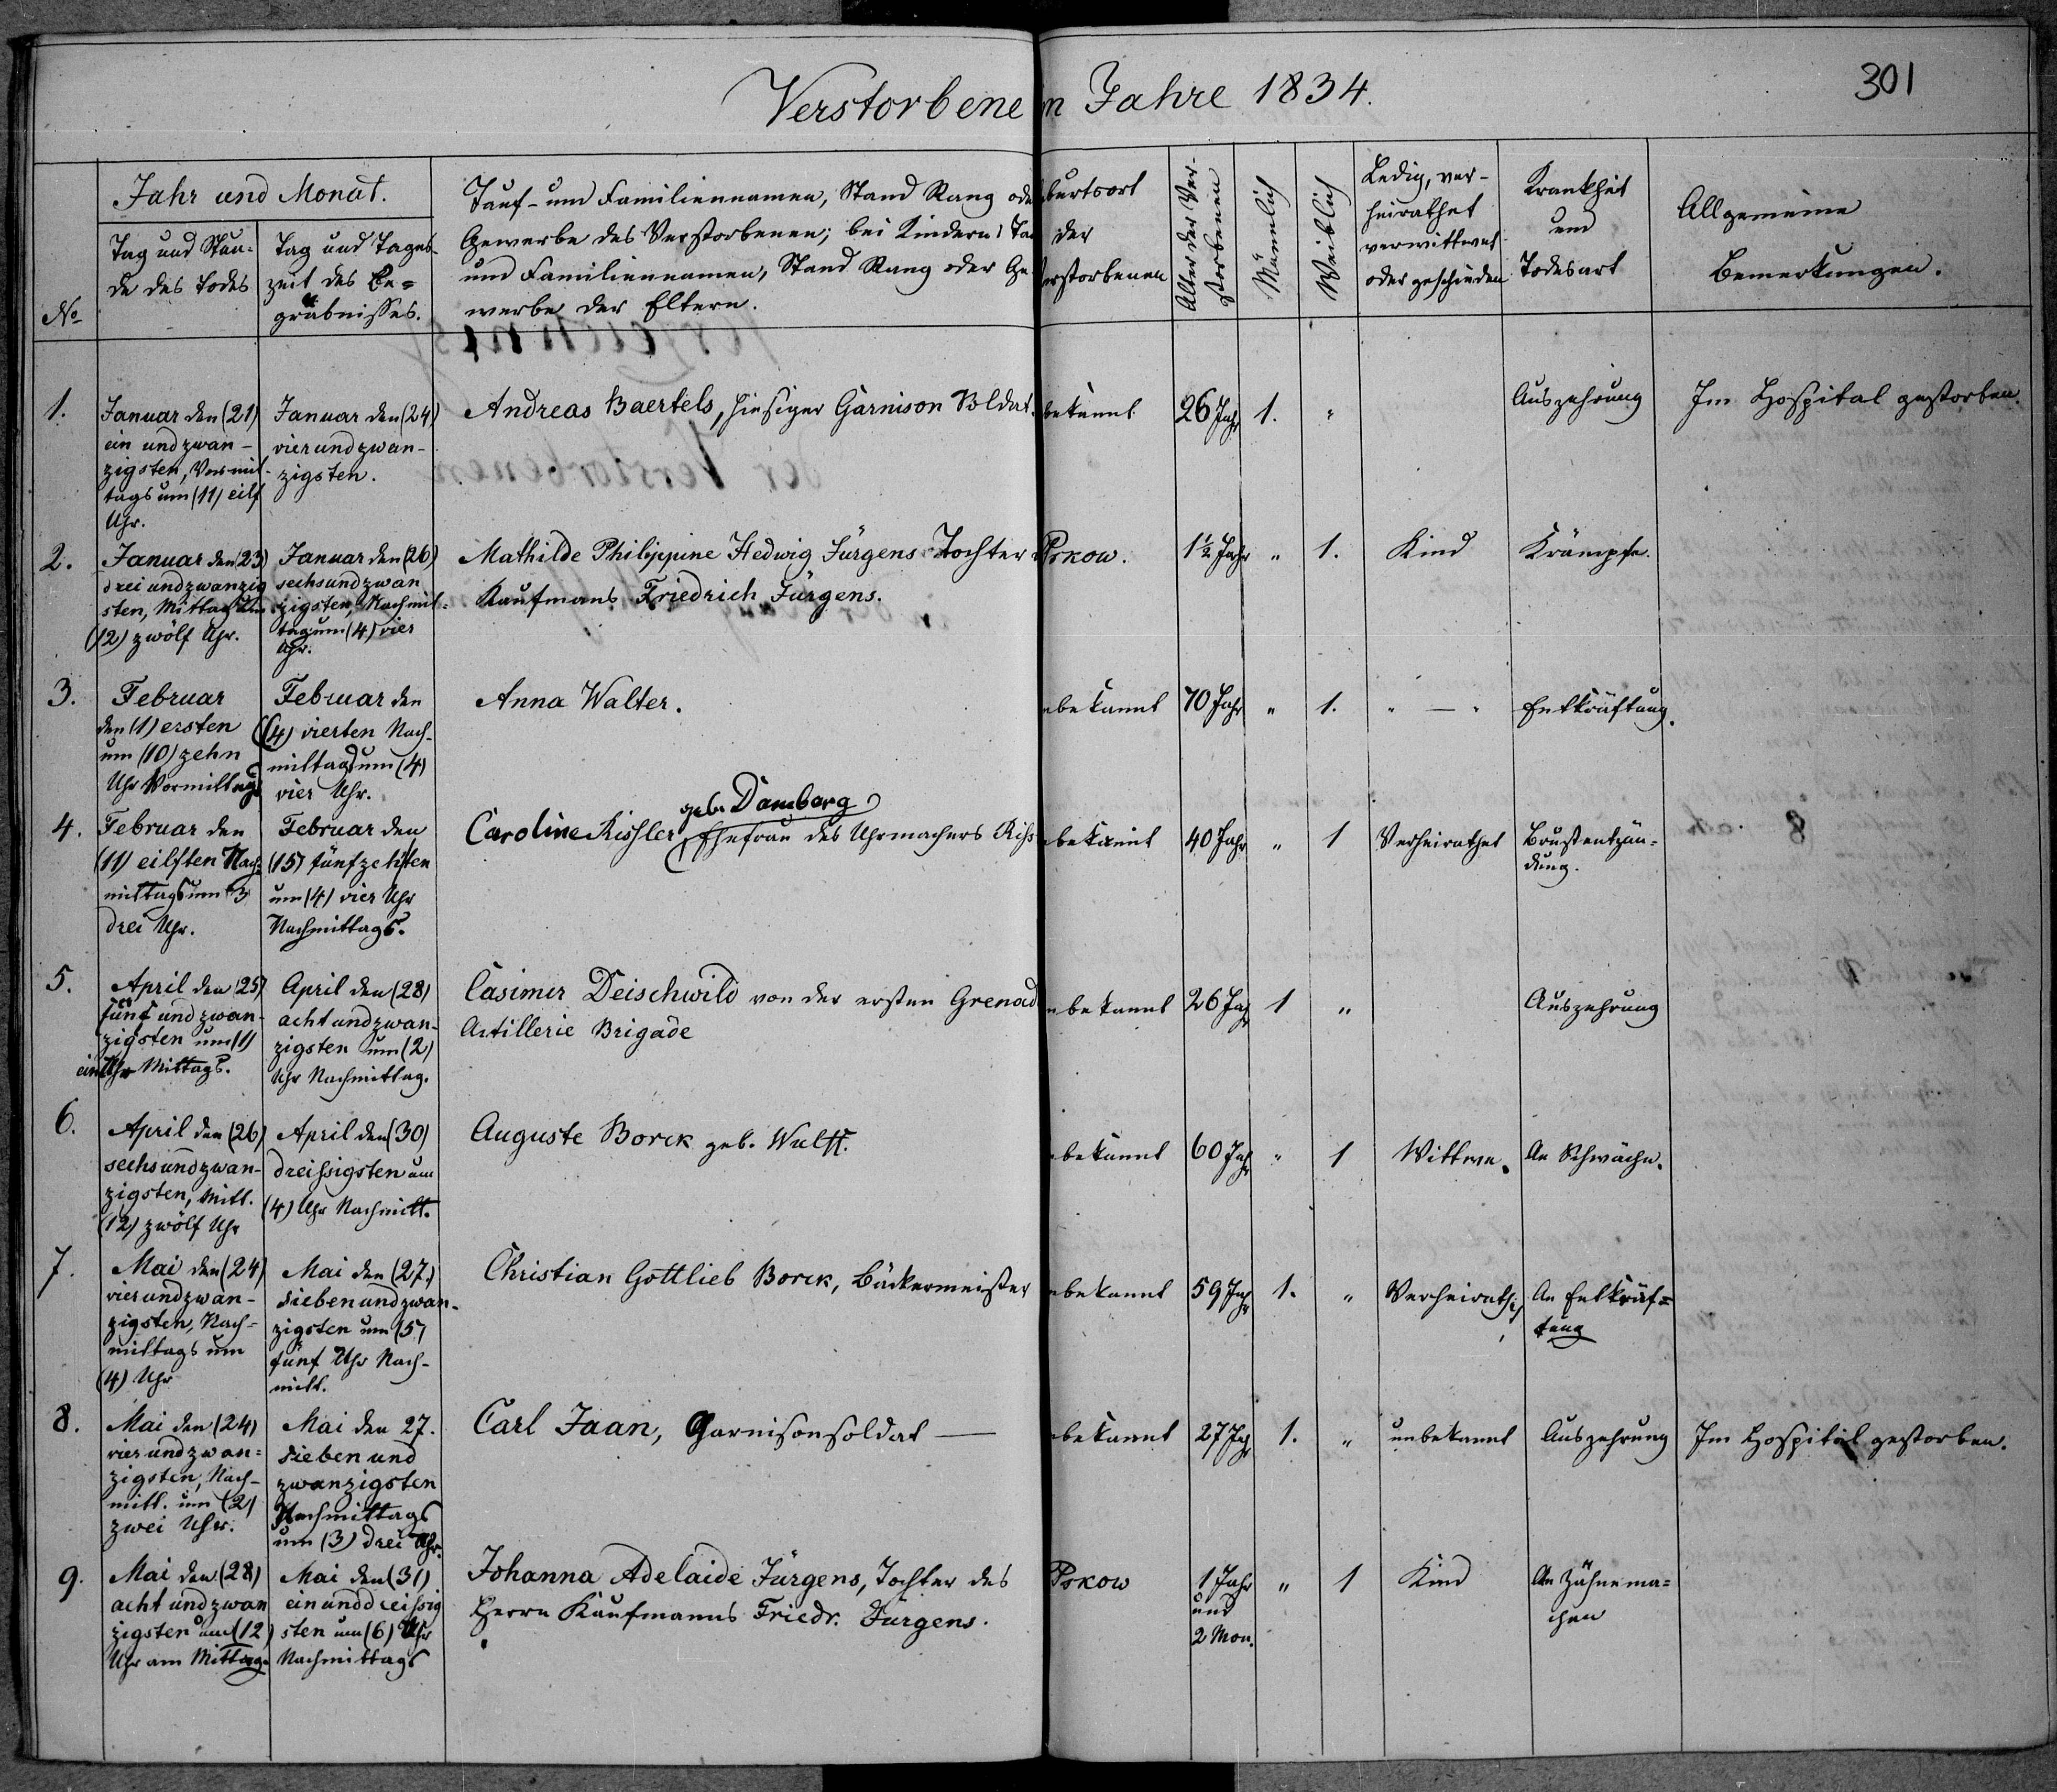 Verstorbene m Jahre 1834.
301
Jahr und Monat.
No
Tag und Stun-
de des Todes
Tag und Tages-
zeit des Be-
gräbnisses.
Tauf- und Familiennamen, Stand Rang ode
Gewerbe des Verstorbenen; bei Kindern: Ta
und Familiennamen, Stand Rang oder Ge
werbe der Eltern.
burtsort
der
erstorbenen
Alter der Ver-
storbenen
Männlich
Weiblich
Ledig, ver-
heirathet
verwittwet
oder geschieden
Krankheit
und
Todesart
Allgemeine
Bemerkungen.
1.
Januar den (21)
ein und zwan-
zigsten, Vormit-
tags um (11) eilf
Uhr.
Januar den (24)
vier und zwan-
zigsten.
Andreas Baertels, hiesiger Garnison Soldat.
bekannt
26 Jahr
1.
"
Auszehrung
Im Hospital gestorben.
2.
Januar den (23)
drei und zwanzig
sten, Mittag um
(12) zwölf Uhr.
Januar den (26)
sechs und zwan
zigsten, Nachmit-
tag um (4) vier
Uhr.
Mathilde Philippine Hedwig Jürgens Tochter
Kaufmans Friedrich Jürgens.
Pskow.
1½ Jahr
"
1.
Kind
Krämpfe.
3.
Februar
den (1) ersten
um (10) zehn
Uhr Vormittags
Februar den
(4) vierten Nach-
mittags um (4)
vier Uhr.
Anna Walter.
nbekannt
70 Jahr
"
1.
" — "
Entkräftung.
4.
Februar den
(11) eilften Nach-
mittags um 3
drei Uhr.
Februar den
(15) fünfzehnten
um (4) vier Uhr
Nachmittags.
geb. Damberg
Caroline Rissler, Ehefrau des Uhrmachers Riss
nbekannt
40 Jahr
"
1
Verheirathet
Brustentzün-
dung.
5.
April den (25)
fünf und zwan-
zigsten um (1)
ein Uhr Mittags.
April den (28)
acht und zwan-
zigsten um (2)
Uhr Nachmittag.
Casimir Deischwild von der ersten Grenad
Artillerie Brigade
nbekannt
26 Jahr
1
"
Auszehrung
6.
April den (26)
sechs und zwan-
zigsten, Mitt.
(12) zwölf Uhr
April den (30)
dreissigsten um
(4) Uhr Nachmitt.
Auguste Borck geb. Wulff.
nbekannt
60 Jahr
"
1
Wittwe.
An Schwäche.
7.
Mai den (24)
vier und zwan-
zigsten, Nach-
mittags um
(4) Uhr
Mai den (27.)
sieben und zwan-
zigsten um (5)
fünf Uhr Nach-
mitt.
Christian Gottlieb Borck, Bäckermeister
nbekannt
59 Jahr
1.
"
An Entkräf-
tung
8.
Mai den (24)
vier und zwan-
zigsten, Nach-
mitt. um (2)
zwei Uhr.
Mai den 27.
sieben und
zwanzigsten
Nachmittags
um (3) drei Uhr.
Carl Jaan, Garnisonsoldat —
nbekannt
27 Jahr
1.
"
unbekannt
Auszehrung
Im Hospital gestorben.
9.
Mai den (28)
acht und zwan
zigsten um (12)
Uhr am Mittag.
Mai den (31)
ein und dreissig
sten um (6) Uhr
Nachmittags
Johanna Adelaide Jürgens, Tochter des
Herrn Kaufmanns Friedr. Jürgens.
Pskow
1 Jahr
und
2 Mon.
"
1
Kind
An Zähnema-
chen